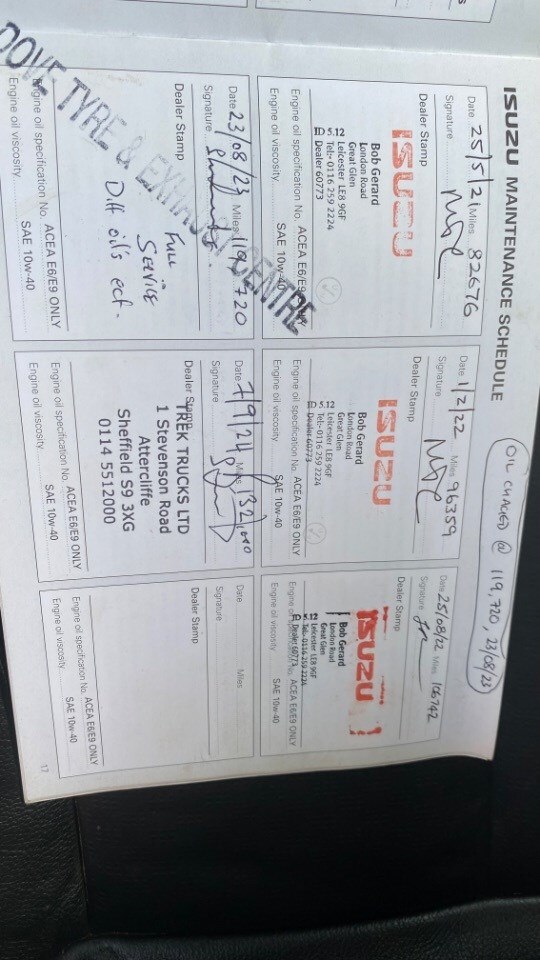 ISUZU MAINTENANCE SCHEDULE
OIL CHACED @ 119,720, 23/08/23
Date 25/5/21 Miles 82676
Signature
Dealer Stamp
ISUZU
Bob Gerard
London Road
Great Glen
Leicester LE8 9GF
Tel:- 0116 259 2224
ID 5.12 Dealer 60773
Engine oil specification No. ACEA E6/E9 ONLY
Engine oil viscosity SAE 10w-40
Date 1/2/22 Miles 96359
Signature
Dealer Stamp
ISUZU
Bob Gerard
London Road
Great Glen
Leicester LE8 9GF
Tel:- 0116 259 2224
ID 5.12 Dealer 60773
Engine oil specification No. ACEA E6/E9 ONLY
Engine oil viscosity SAE 10w-40
Date 25/08/22 Miles 106742
Signature
Dealer Stamp
ISUZU
Bob Gerard
London Road
Great Glen
Leicester LE8 9GF
Tel:- 0116 259 2224
ID 5.12 Dealer 60773
Engine oil specification No. ACEA E6/E9 ONLY
Engine oil viscosity SAE 10w-40
Date 23/08/23 Miles 119720
Signature
DOVE TYRE & EXHAUST CENTRE
Dealer Stamp
Full
Service
Diff oil's ect.
Engine oil specification No. ACEA E6/E9 ONLY
Engine oil viscosity SAE 10w-40
Date 7/9/24 Miles 132,000
Signature
Dealer Stamp
TREK TRUCKS LTD
1 Stevenson Road
Attercliffe
Sheffield S9 3XG
0114 5512000
Engine oil specification No. ACEA E6/E9 ONLY
Engine oil viscosity SAE 10w-40
Date Miles
Signature
Dealer Stamp
Engine oil specification No. ACEA E6/E9 ONLY
Engine oil viscosity SAE 10w-40
17